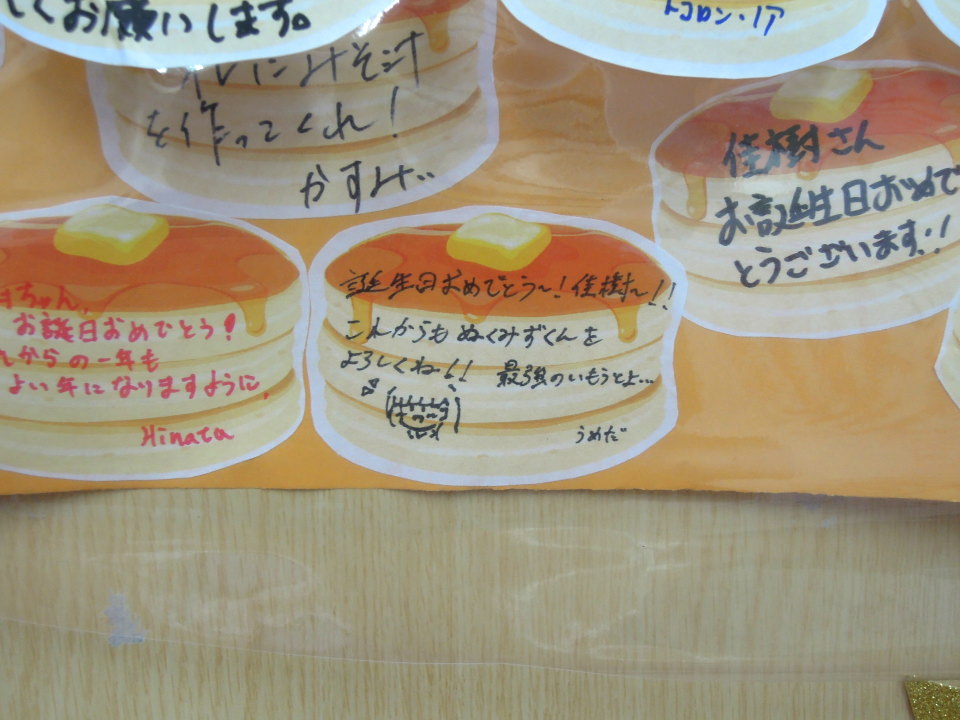 しくお願いします。
トコロン・リア
オレにみそ汁
を作ってくれ!
かすみ..
佳樹さん
お誕生日おめで
とうございます!!
ちゃん、
お誕日おめでとう!
れからの一年も
よい年になりますように。
Hinata
誕生日おめでとう〜!佳樹〜!!
これからもぬくみずくんを
よろしくね!!
最強のいもうとよ...
うめだ